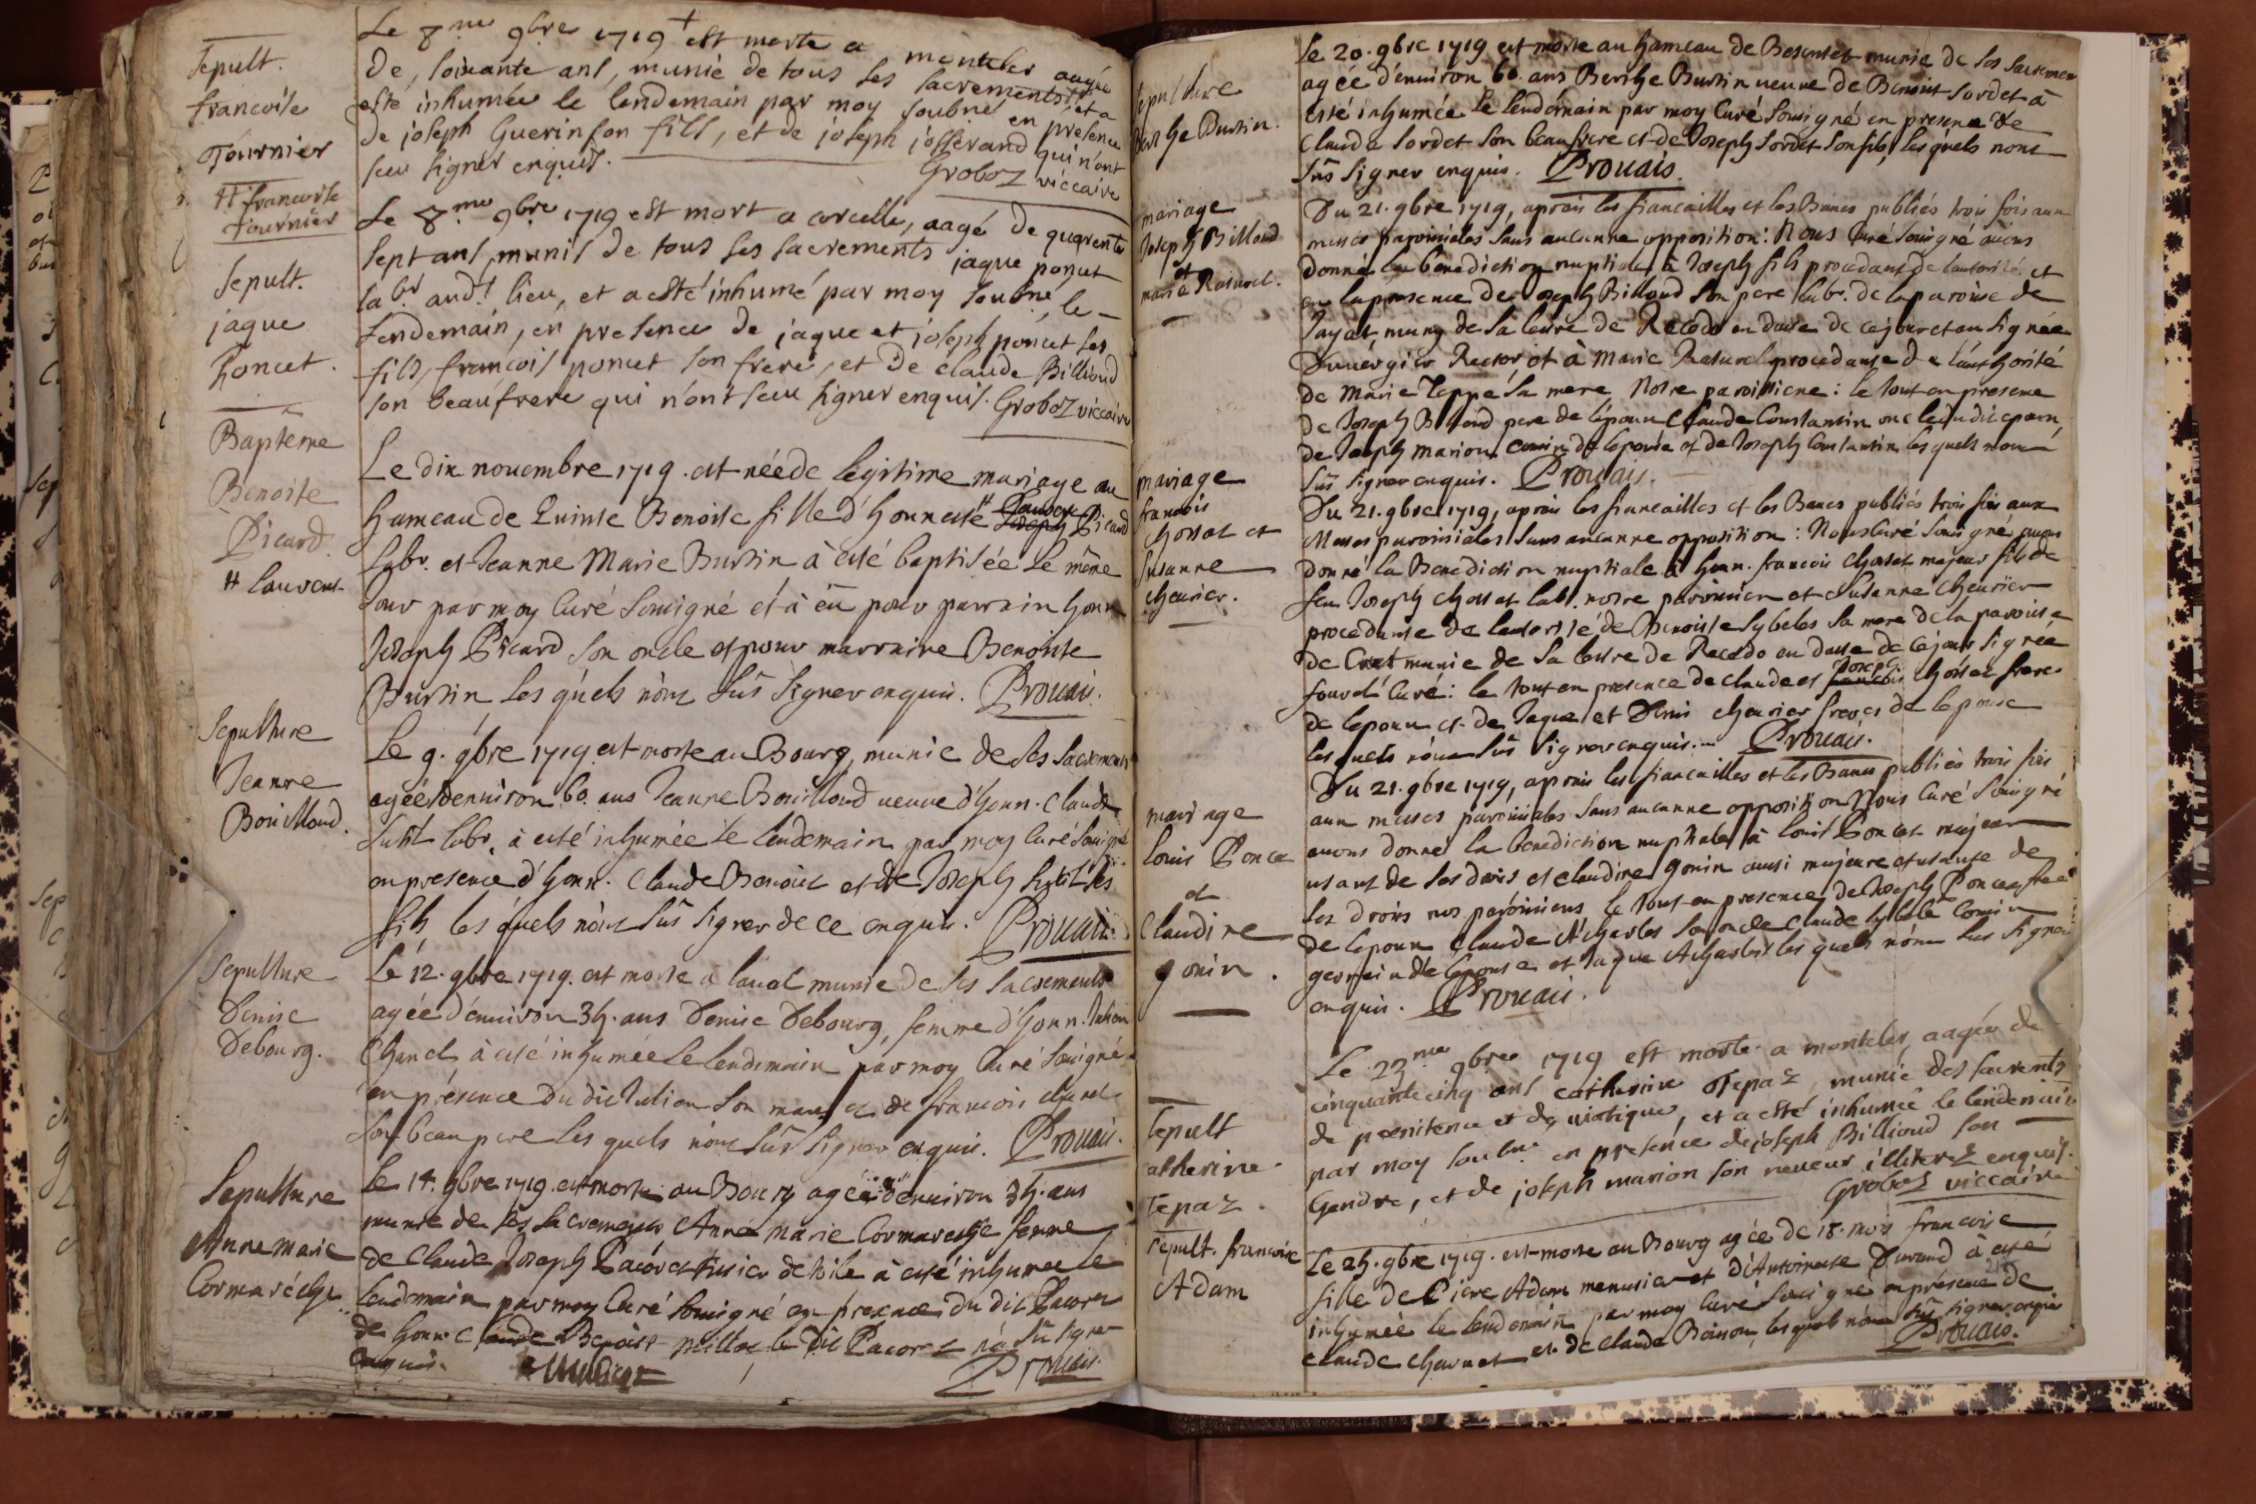 Sepult.
francoise
Tournier
# francoise
tournier
Le 8me 9bre 1719 + est morte a monteler aagée
de soixante ans, munie de tous ses sacrements et a
esté inhumée le lendemain par moy soubné en presence
de joseph Guerin son fils, et de joseph josserand qui n'ont
sceu signer enquis. Groboz viccaire
Sepult.
jaque
Poncet.
Le 8me 9bre 1719 est mort a corcelle, aagé de quarente
sept ans, munis de tous ses sacrements jaque poncet
labr. audt. lieu, et a esté inhumé par moy soubné, le
lendemain, en presence de jaque et joseph poncet ses
fils, francois poncet son frere, et de claude Billioud
son beaufrere qui n'ont sceu signer enquis. Groboz viccaire
Bapteme
Benoite
Picard.
# laurent
Le dix novembre 1719. est née de legitime mariage au
hameau de Quinte Benoite fille d'honneste Picard
labr. et Jeanne Marie Burtin à esté baptisée le même
Jour par moy Curé Sousigné et à eü pour parrain honn
Joseph Picard son oncle et pour marraine Benoiste
Burtin les quels n'ont sus signer enquis. Prouais.
Sepulture
Jeanne
Bouilloud.
Le 9. 9bre 1719 est morte au Bourg, munie de ses Sacrements
agée d'environ 60. ans Jeanne Bouilloud veuve d'honn. Claude
labr. à esté inhumée le lendemain par moy Curé Sousigné
en presence d'honn. Claude Benoict et de Joseph ses
fils les quels n'ont sus signer de ce enquis. Prouais.
Sepulture
Denise
Debourg.
Le 12. 9bre 1719. est morte à laval munie de ses Sacrements
agée d'environ 35. ans Denise Debourg, femme d'honn. Julien
Chanel à esté inhumée le lendemain par moy Curé Sousigné
en présence du dit Julien son mary et de francois chanel
son beau pere les quels n'ont sus signer enquis. Prouais.
Sepulture
Anne marie
Cormareche
Le 14. 9bre 1719. est morte au Bourg agée d'environ 35. ans
munie de ses Sacrements Anne marie Cormareche femme
de Claude Joseph Pacoret tissier de toile à esté inhumée le
lendemain par moy Curé Sousigné en présence du dit Pacoret
de honn Claude Benoist le dit Pacoret n'a sus signer
enquis. Prouais.
Sepulture
Berthe Burtin.
Le 20. 9bre 1719 est morte au hameau de munie de ses Sacremens
agée d'environ 60. ans Berthe Burtin veuve de Benoit Sordet à
esté inhumée le lendemain par moy Curé Sousigné en presence de
Claude Sordet son beaufrere et de Joseph Sordet son fils, les quels n'ont
sus signer enquis. Prouais.
mariage
Joseph Billoud
et
marie
Du 21. 9bre 1719, après les fiancailles et les Bancs publiés trois fois aux
messes paroissiales sans aucunne opposition: Nous Curé Sousigné avons
donné la benediction nuptiale à Joseph fils procedant de lautorité et
en la presence de Joseph Billoud son pere labr. de la paroisse de
Jayat, muny de sa lettre de Recedo en datte de ce jour et an signée
Duvergier Rector, et à Marie procedante de l'authorité
de Marie Teppe sa mere Notre paroissiene: le tout en presence
de Joseph Billoud pere de lepoux Claude Constantin oncle du dit epoux,
de Joseph Marion cousin de lepouse et de Joseph Constantin les quels n'ont
sus signer enquis. Prouais.
mariage
francois
chossat et
Susanne
chevrier.
Du 21. 9bre 1719, après les fiancailles et les Bancs publiés trois fois aux
Messes paroissiales Sans aucunne opposition: Nous Curé Sousigné avons
donné la Benediction nuptiale à honn. francois Chossat majeur fils de
feu Joseph Chossat labr. notre paroissien et Susanne Chevrier
procedante de lautorité de Benoiste Sybeles sa mere de la paroisse
de Cras munie de sa lettre de Recedo en datte de ce jour signée
Curé: le tout en presence de Claude et Joseph Chossat freres
de lepoux et de Jaque et Denis chevrier freres de lepouse
les quels n'ont sus signer enquis. Prouais.
mariage
Louis Poncet
et
Claudine
gonin.
Du 21. 9bre 1719, après les fiancailles et les Bancs publiés trois fois
aux messes paroissiales Sans aucunne opposition Nous Curé Sousigné
avons donné la benediction nuptiale à louis Poncet majeur
usant de ses droits et claudine gonin aussi majeure et usante de
ses droits nos paroissiens le tout en presence de Joseph Poncet frere
de lepoux Claude son oncle Claude cousin
germain de lepouse et Jaque les quels n'ont sus signer
enquis. Prouais.
Sepult
catherine
Tepaz.
Le 23me 9bre 1719 est morte a monteler, aagée de
cinquante cinq ans catherine Tepaz, munie des sacrents
de poenitence et de viatique, et a esté inhumée le lendemain
par moy soubne en presence de joseph Billioud son
Gendre, et de joseph marion son neveur illiterez enquis.
Groboz viccaire
sepult. francoise
Adam
Le 25. 9bre 1719. est morte au Bourg agée de 18. mois francoise
fille de Piere Adam menusier et d'Antoinette Durand à esté
inhumée le lendemain par moy Curé Sousigné en présence de
Claude charnet et de Claude Boisson, les quels n'ont sus signer enquis
Prouais.